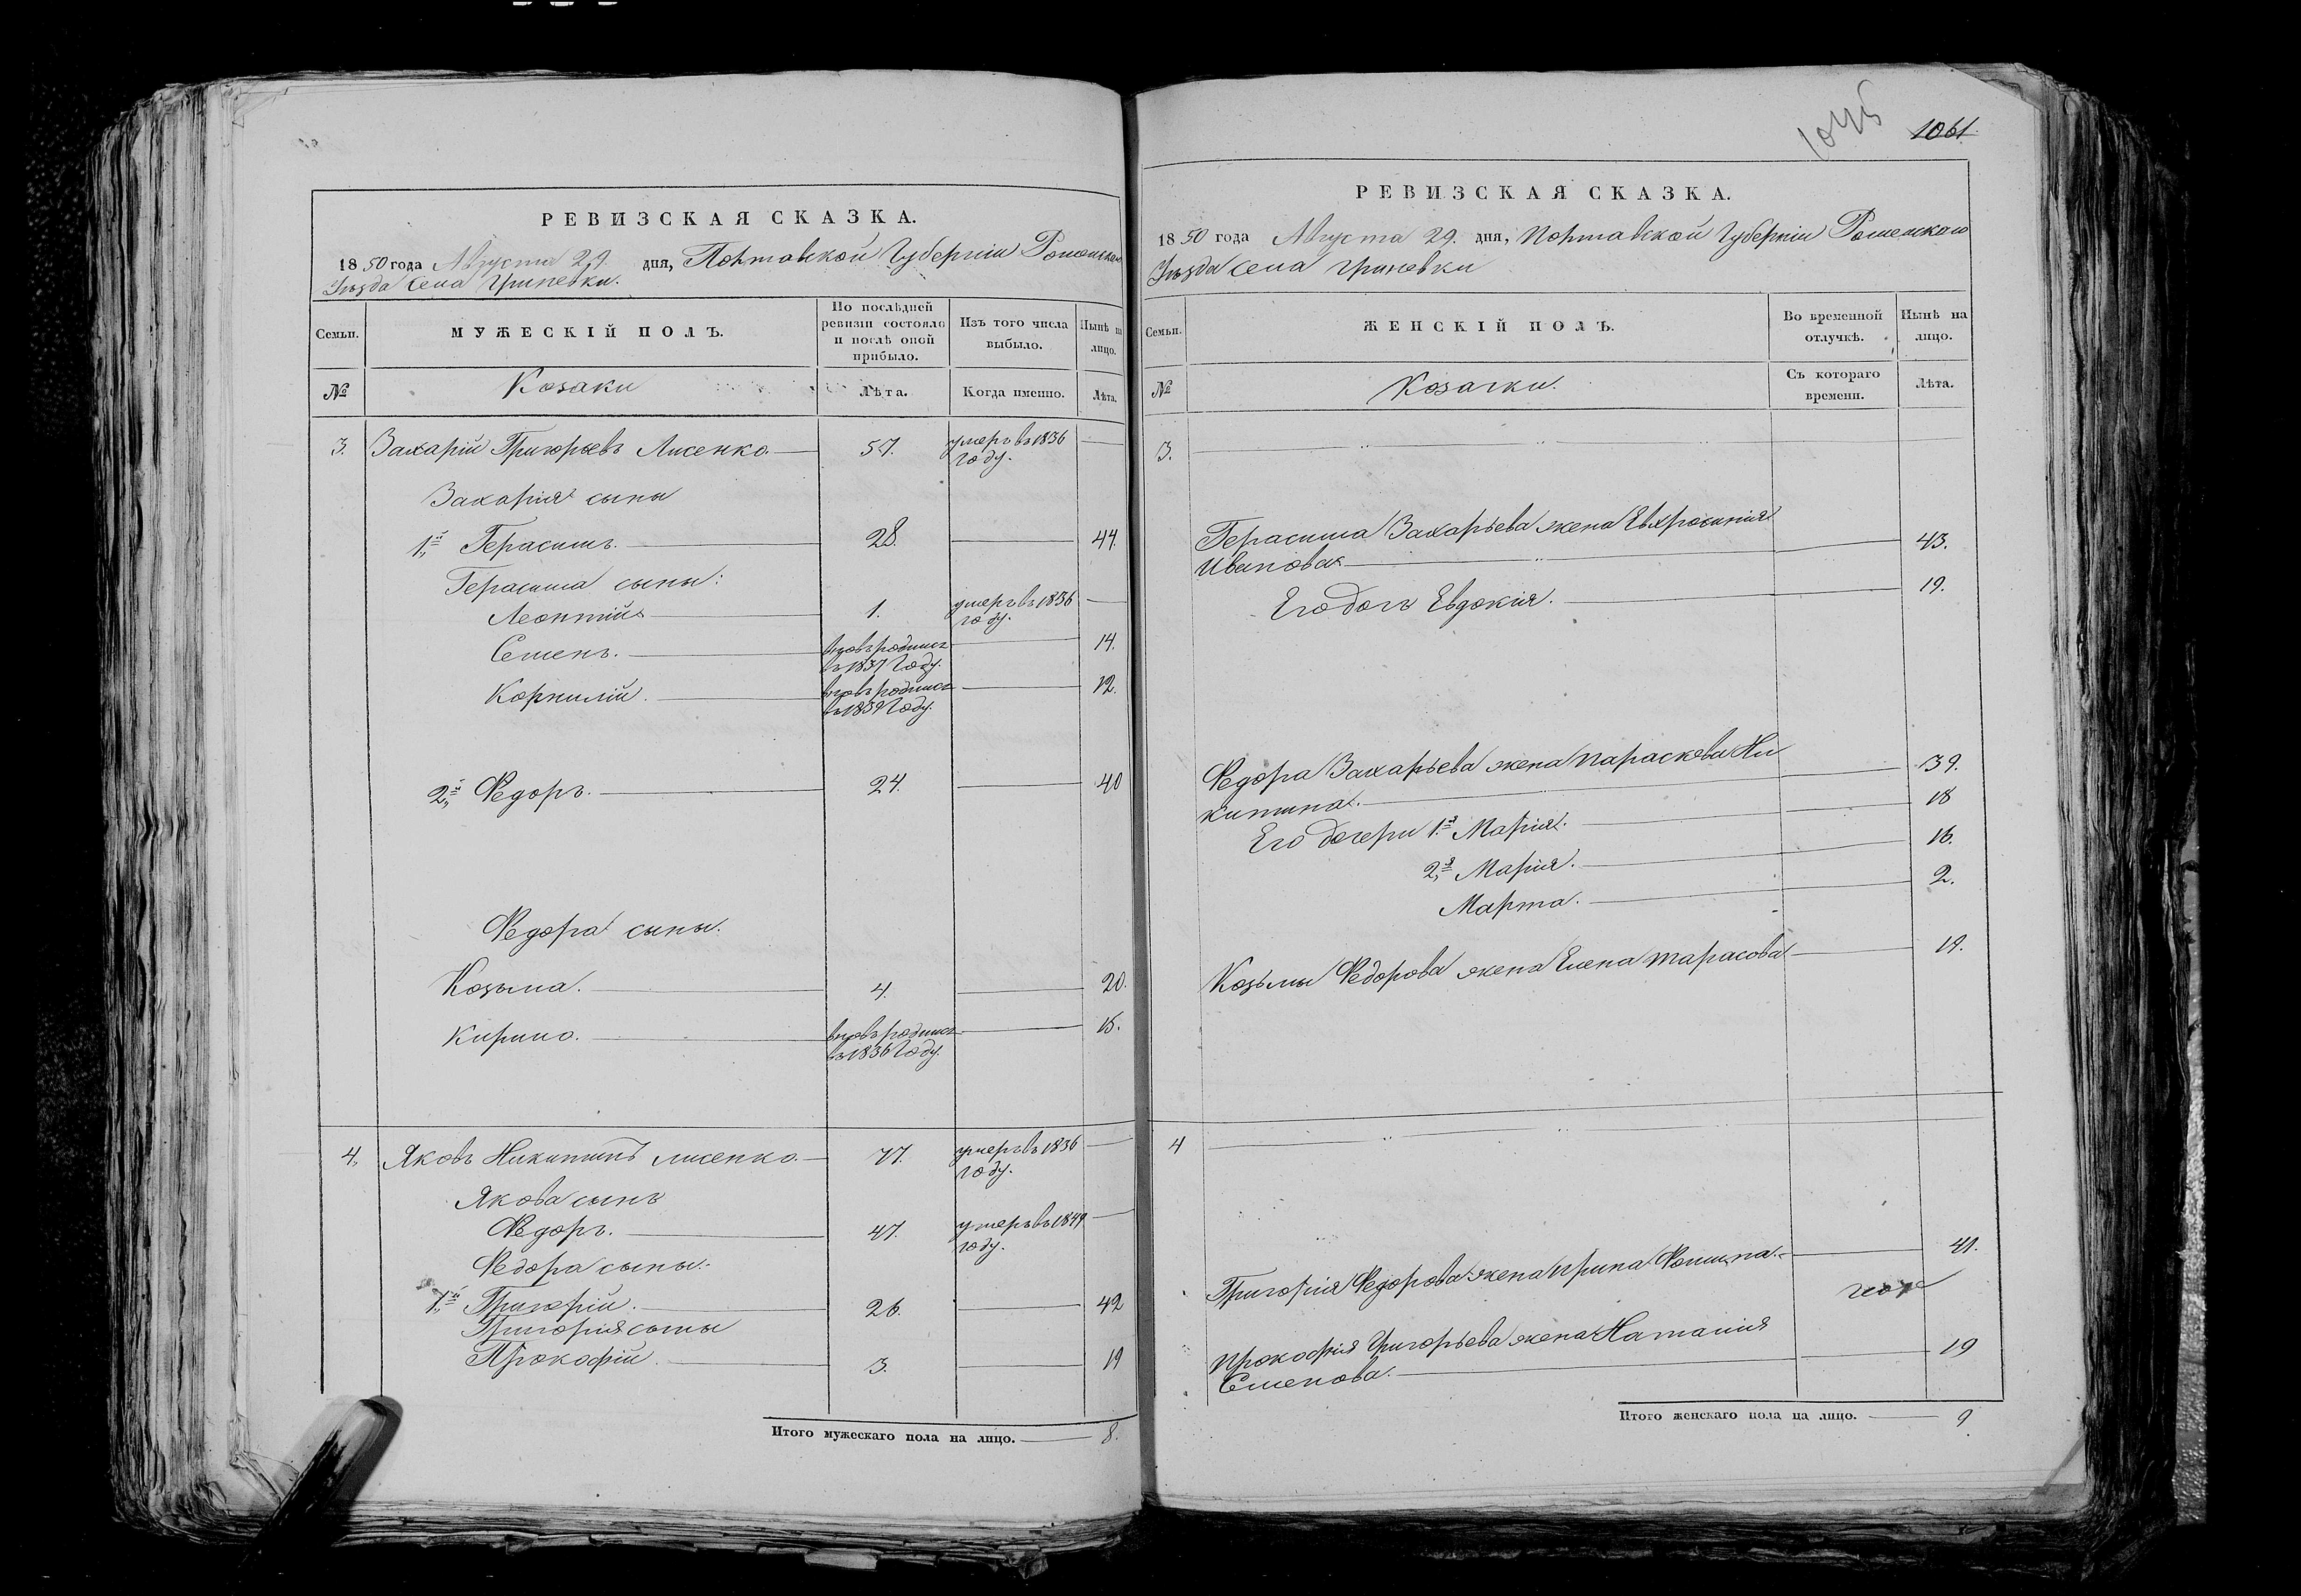 РЕВИЗСКАЯ СКАЗКА.
1850 года Августа 29. дня, Полтавской Губерніи Роменскаго
Уѣзда села Гриневки.
Семьи.
МУЖЕСКІЙ ПОЛЪ.
По послѣдней
ревизіи состояло
и послѣ оной
прибыло.
Изъ того числа
выбыло.
Нынѣ на
лицо.
№
Козаки
Лѣта.
Когда именно.
Лѣта.
3. Захарій Григорьевъ Лисенко. 57. умеръ въ 1836
году.
Захарія сыны
1й Герасимъ. 28. 44.
Герасима сыны:
Леонтій 1. умеръ въ 1836
году.
Семенъ. вновь родился 14.
въ 1837 Году.
Корнилій. вновь родился 12.
въ 1839 Году.
2й Федоръ. 24. 40
Федора сыны.
Козьма. 4. 20.
Кирило. вновь родился 15.
въ 1836 Году.
4. Яковъ Никитинъ Лисенко. 77. умеръ въ 1836
году.
Якова сынъ
Федоръ. 47. умеръ въ 1849
году.
Федора сыны:
1й Григорій. 26. 42
Григорія сыны
Прокофій. 3. 19
Итого мужескаго пола на лицо. 8.
1045
1061.
РЕВИЗСКАЯ СКАЗКА.
1850 года Августа 29. дня, Полтавской Губерніи Роменскаго
Уѣзда села Гриневки
Семьи.
ЖЕНСКІЙ ПОЛЪ.
Во временной
отлучкѣ.
Нынѣ на
лицо.
№
Козачки.
Съ котораго
времени.
Лѣта.
3.
Герасима Захарьева жена Евхросинія
Иванова 43.
Его дочь Евдокія. 19.
Федора Захарьева жена Параскева Ни
китина. 39.
Его дочери 1я Марія. 18
2я Марія. 16.
Марта. 2.
Козьмы Федорова жена Елена Тарасова 19.
4
Григорія Федорова жена Ирина Фомина. 41.
Прокофія Григорьева жена Наталія
Семенова. 19
Итого женскаго пола на лицо. 9.